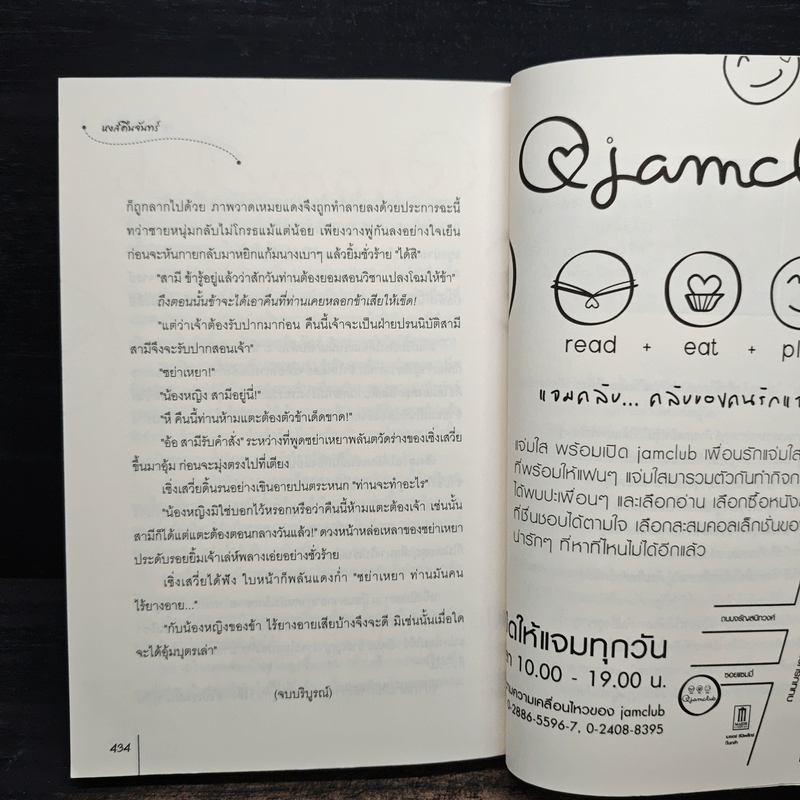 หงส์คืนจันทร์
ก็ถูกลากไปด้วย ภาพวาดเหมยแดงจึงถูกทำลายลงด้วยประการฉะนี้
ทว่าชายหนุ่มกลับไม่โกรธแม้แต่น้อย เพียงวางพู่กันลงอย่างใจเย็น
ก่อนจะหันกายกลับมาหยิกแก้มนางเบาๆ แล้วยิ้มชั่วร้าย "ได้สิ"
"สามี ข้ารู้อยู่แล้วว่าสักวันท่านต้องยอมสอนวิชาแปลงโฉมให้ข้า"
ถึงตอนนั้นข้าจะได้เอาคืนที่ท่านเคยหลอกข้าเสียให้เข็ด!
"แต่ว่าเจ้าต้องรับปากมาก่อน คืนนี้เจ้าจะเป็นฝ่ายปรนนิบัติสามี
สามีจึงจะรับปากสอนเจ้า"
"ซย่าเหยา!"
"น้องหญิง สามีอยู่นี่!"
"หึ คืนนี้ท่านห้ามแตะต้องตัวข้าเด็ดขาด!"
"อ้อ สามีรับคำสั่ง" ระหว่างที่พูดซย่าเหยาพลันตวัดร่างของเซิ่งเสวี่ย
ขึ้นมาอุ้ม ก่อนจะมุ่งตรงไปที่เตียง
เซิ่งเสวี่ยดิ้นรนอย่างเขินอายปนตระหนก "ท่านจะทำอะไร"
"น้องหญิงมิใช่บอกไว้หรอกหรือว่าคืนนี้ห้ามแตะต้องเจ้า เช่นนั้น
สามีก็ได้แต่แตะต้องตอนกลางวันแล้ว!" ดวงหน้าหล่อเหลาของซย่าเหยา
ประดับรอยยิ้มเจ้าเล่ห์พลางเอ่ยอย่างชั่วร้าย
เซิ่งเสวี่ยได้ฟัง ใบหน้าก็พลันแดงก่ำ "ซย่าเหยา ท่านมันคน
ไร้ยางอาย..."
"กับน้องหญิงของข้า ไร้ยางอายเสียบ้างจึงจะดี มิเช่นนั้นเมื่อใด
จะได้อุ้มบุตรเล่า"
(จบบริบูรณ์)
434
jamclu
read + eat + pl
แจมคลับ... คลับของคนรักแจ
แจ่มใส พร้อมเปิด jamclub เพื่อนรักแจ่มใส
ที่พร้อมให้แฟนๆ แจ่มใสมารวมตัวกันทำกิจก
ได้พบปะเพื่อนๆ และเลือกอ่าน เลือกซื้อหนัง
ที่ชื่นชอบได้ตามใจ เลือกสะสมคอลเล็กชั่นขอ
น่ารักๆ ที่หาที่ไหนไม่ได้อีกแล้ว
ให้แจมทุกวัน
10.00 - 19.00 น.
ความเคลื่อนไหวของ jamclub
0-2886-5596-7, 0-2408-8395
ถนนจรัญสนิทวงศ์
ซอยแซมมี่
jamclub